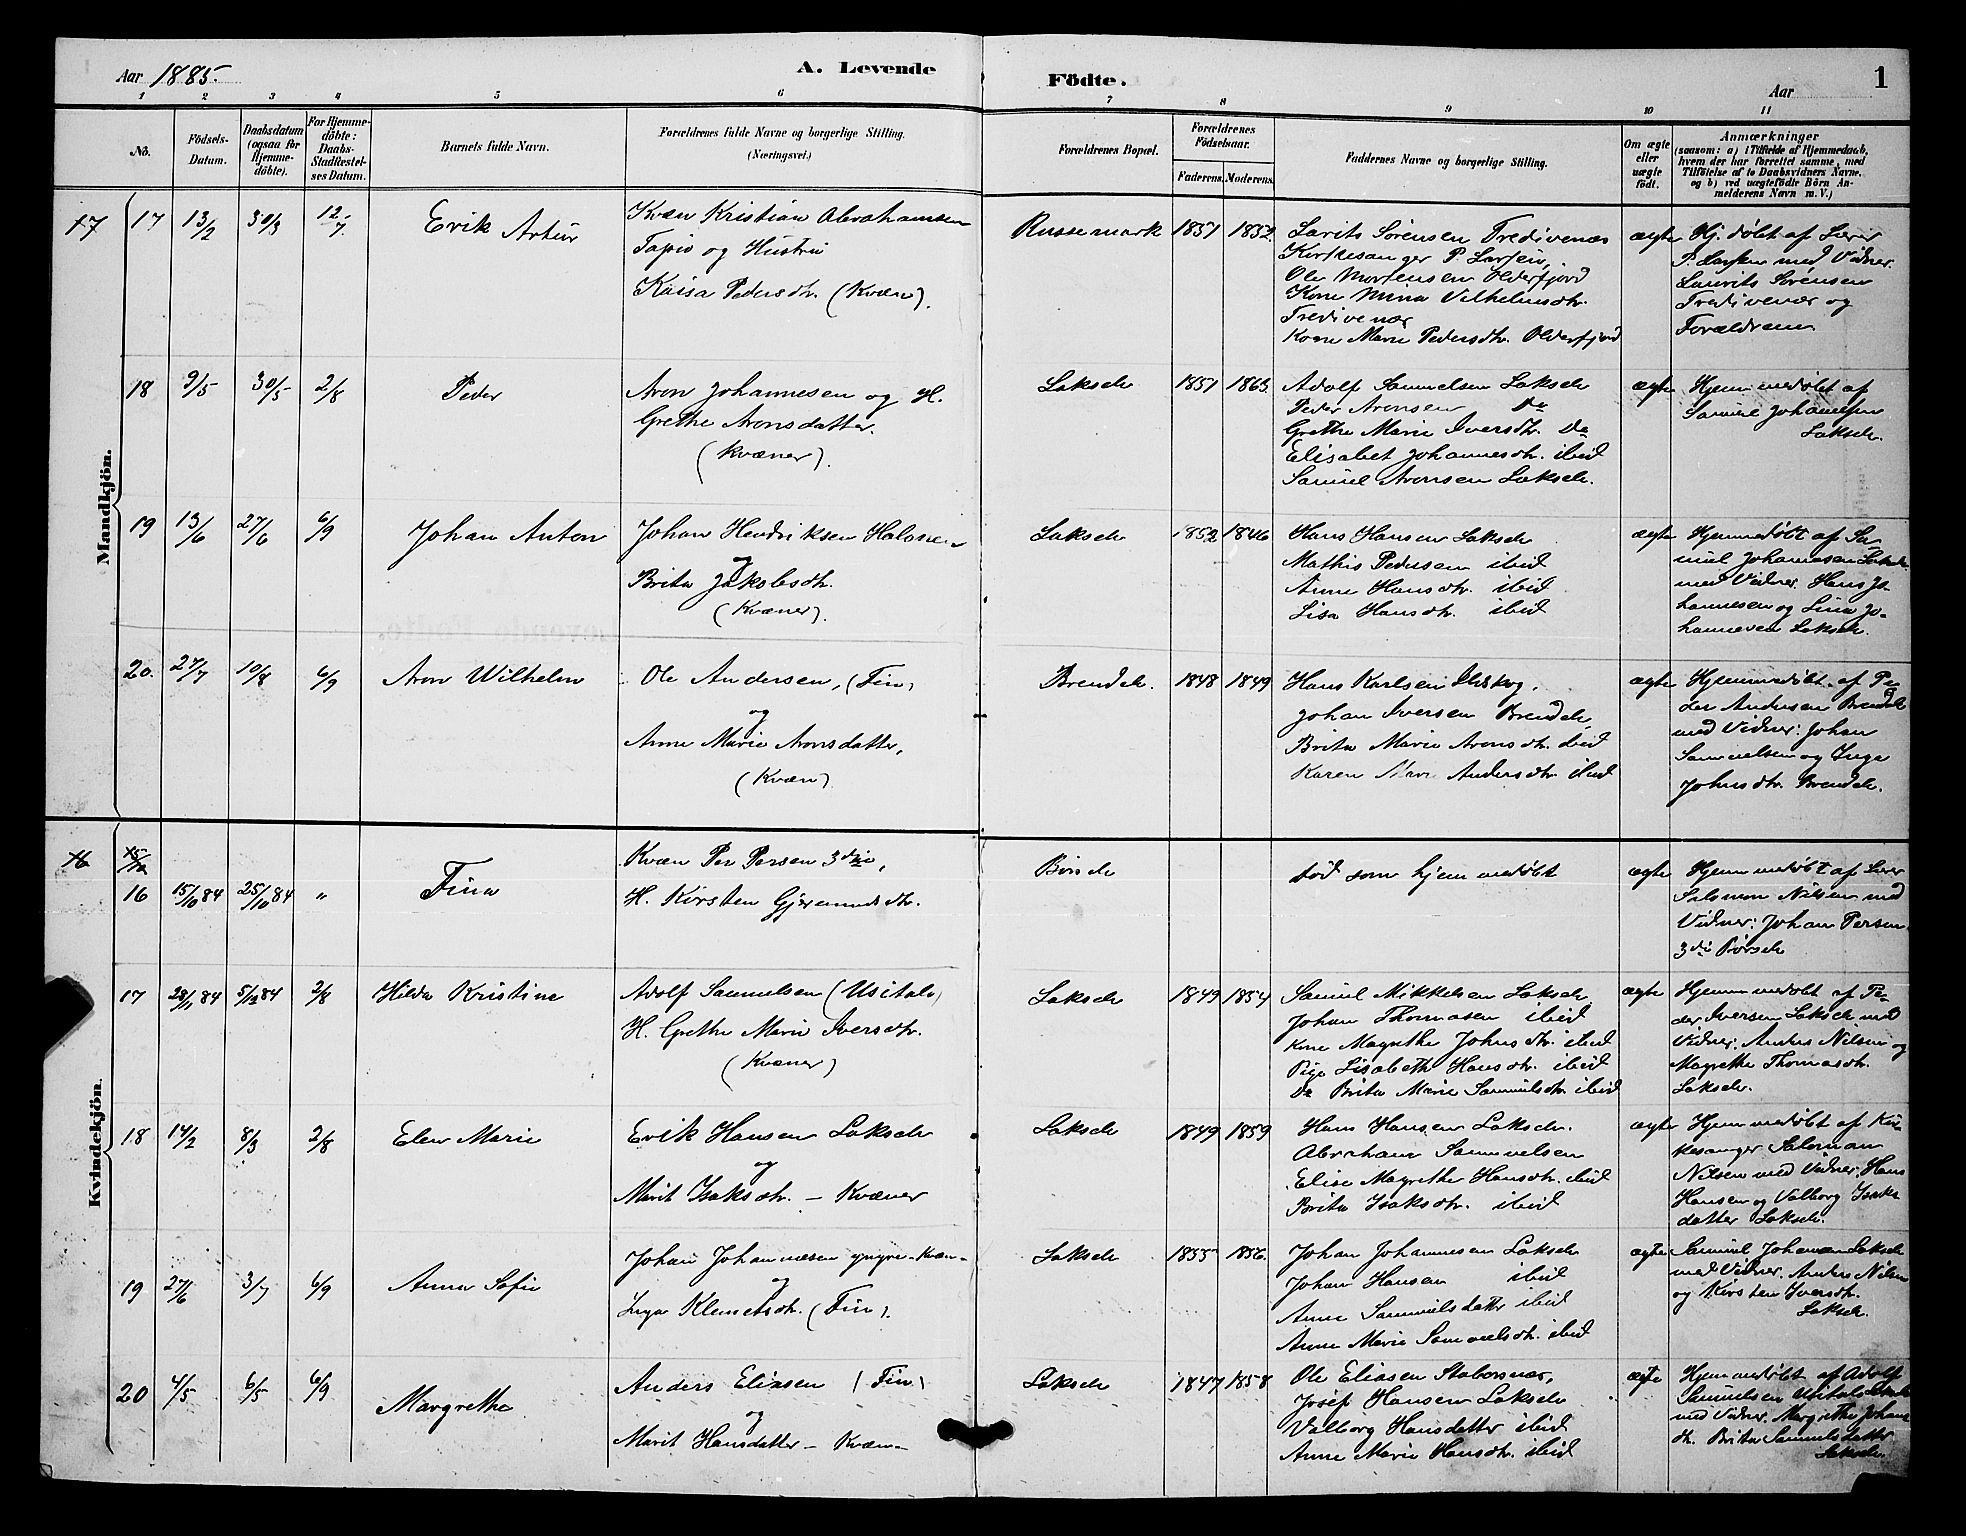 Aar 1885.
A. Levende
Födte.
Aar
1
1 2 3 4 5 6 7 8 9 10 11
No.
Födsels-
Datum.
Daabsdatum
(ogsaa for
Hjemme-
döbte).
For Hjemme-
döbte:
Daabs-
Stadfæstel-
ses Datum.
Barnets fulde Navn.
Forældrenes fulde Navne og borgerlige Stilling.
(Næringsvei.)
Forældrenes Bopæl.
Forældrenes
Födselsaar.
Faderens. Moderens.
Faddernes Navne og borgerlige Stilling.
Om ægte
eller
uægte
födt.
Anmærkninger
(saasom: a) i Tilfælde af Hjemmedaab,
hvem der har forrettet samme, med
Tilföielse af to Daabsvidners Navne,
og b) ved uægtefödte Börn An-
melderens Navn m. V.)
Mandkjön.
17 17 13/2 30/3 12/7 Erik Artur
Kvæn Kristian Abrahamsen
Tapio og Hustru
Kaisa Pedersdtr. (Kvæn).
Russemark 1851 1852
Lavits Sørensen Tredivenæs
Kirkesanger P. Larsen,
Ole Mortensen Olderfjord
Kone Mina Vilhelmsdtr.
Tredivenæs
Kone Marie Pedersdtr. Olderfjord
ægte
Hj. døbt af Lærer
P. Larsen med Vidner.
Laurits Sørensen
Tredivenæs og
Forældrene
18 9/5 30/5 2/8 Peder
Aron Johannesen og H.
Grethe Aronsdatter.
(Kvæner).
Lakselv 1851 1863.
Adolf Samuelsen Lakselv
Peder Aronsen Do
Grethe Marie Iversdtr. Do
Elisabet Johannesdtr. ibid
Samuel Aronsen Lakselv.
ægte
Hjemmedøbt af
Samuel Johannesen
Lakselv.
19 13/6 27/6 6/9 Johan Anton
Johan Hendriksen Halonen
og
Brita Jakobsdtr.
(Kvæner).
Lakselv 1852 1846
Hans Hansen Lakselv
Mathis Pedersen ibid
Anne Hansdtr. ibid
Lisa Hansdtr. ibid
ægte
Hjemmedøbt af Sa-
muel Johannesen Lakselv
med Vidner. Hans Jo-
hannesen og Lina Jo-
hannesen Lakselv.
20. 27/7 10/8 6/9 Aron Wilhelm
Ole Andersen, (Fin)
og
Anne Marie Aronsdatter,
(Kvæn)
Brendelv. 1848 1849
Hans Karlsen
Johan Iversen Brendelv,
Brita Marie Aronsdtr. ibid
Karen Marie Andersdtr ibid
ægte
Hjemmedøbt af Pe-
der Andersen Brendelv
med Vidner: Johan
Samuelsen og Inga
Johnsdtr. Brendelv.
Kvindekjön.
16 16 15/10 84 25/10 84 " Fina
Kvæn Per Persen 3die,
H. Kirsten Gjermundsdtr.
Børselv
død som hjemmedøbt
ægte
Hjemmedøbt af Lærer
Salomon Nilsen med
Vidner: Johan Persen
3die Børselv
17 28/11 84 5/12 84 2/8 Hilda Kristine
Adolf Samuelsen (Usitalo)
H. Grethe Marie Iversdtr.
(Kvæner)
Lakselv 1849 1854
Samuel Mikkelsen Lakselv,
Johan Thomasen ibid
Kone Magrethe Johnsdtr. ibid
Pige Lisabeth Hansdtr. ibid
Do Brita Marie Samuelsdtr ibid
ægte
Hjemmedøbt af Pe-
der Iversen Lakselv med
Vidner. Anders Nilsen og
Magrethe Thomasdtr.
Lakselv.
18 14/2 8/3 2/8 Elen Marie
Erik Hansen Lakselv
og
Marit Isaksdtr. – Kvæner
Lakselv 1849 1859
Hans Hansen Lakselv.
Abraham Samuelsen
Elise Magrethe Hansdtr. ibid
Brita Isaksdtr. ibid
ægte
Hjemmedøbt af Kir-
kesanger Saloman
Nilsen med Vidner: Hans
Hansen og Valborg Isaks-
datter Lakselv.
19 27/6 3/7 6/9 Anna Sofie
Johan Johannesen yngre – Kvæn –
og
Inga Klemetsdtr. (Fin).
Lakselv 1855 1856.
Johan Johannesen Lakselv
Johan Hansen ibid
Anne Samuelsdatter ibid
Anne Marie Samuelsdtr. ibid
ægte
Samuel Johannesen Lakselv
med Vidner. Anders Nilsen
og Kirsten Iversdtr.
Lakselv.
20 4/5 6/5 6/9 Margrethe
Anders Eliasen (Fin)
og
Marit Hansdatter – Kvæn –
Lakselv 1847 1858
Ole Eliasen Staborsnæs,
Josef Hansen Lakselv
Valborg Hansdatter ibid
Anne Marie Hansdtr. ibid
ægte
Hjemmedøbt af Adolf
Samuelsen Usitalo Lakselv
med Vidner. Margrethe Johans-
dtr. Brita Samuelsdatter
Lakselv.